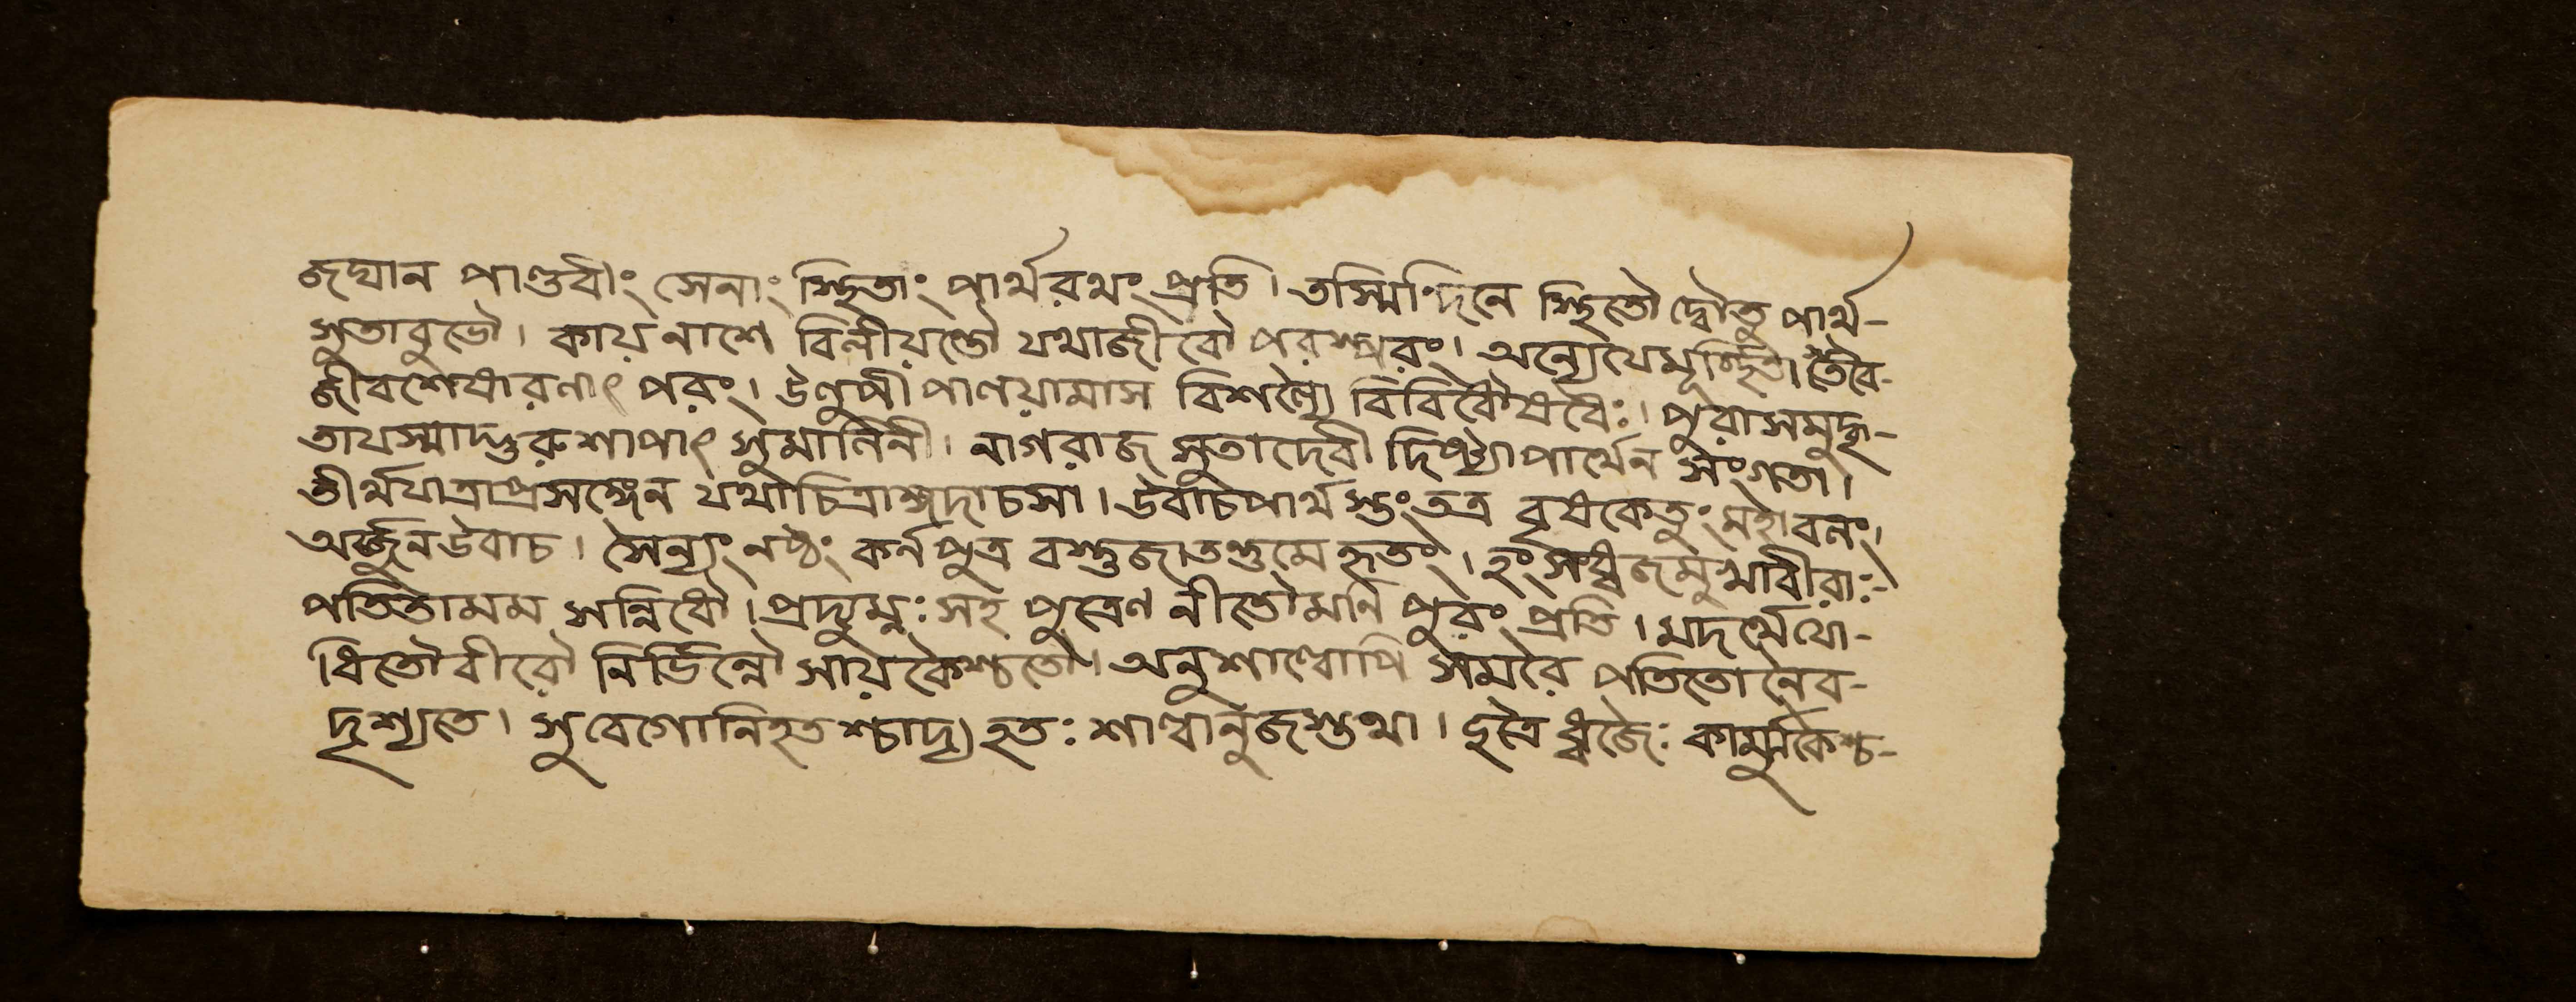 জঘান পাণ্ডবীং সেনাং স্থিতাং পার্থরথং প্রতি। তস্মিন্দিনে স্থিতৌ দ্বৌতু পার্থ-
সুতাবুভৌ। কায়নাশে বিলীয়ন্তৌ যথাজীবৌ পরস্পরং। অন্যেযেমূর্চ্ছিতা তৈব-
জীবশেষারণাৎ পরং। উলুপী পালয়ামাস বিশল্যৈ বিবিধৌষধৈঃ। পুরাসমুদ্ধৃ-
তাযস্মাদ্গুরুশাপাৎ সুমানিনী। নাগরাজ সুতাদেবী দিষ্ট্যাপার্থেন সংগতা।
তীর্থযাত্রাপ্রসঙ্গেন যথাচিত্রাঙ্গদাচসা। উবাচপার্থ স্তং তত্র বৃষকেতুং মহাবলং।
অর্জ্জুনউবাচ। সৈন্যং নষ্টং কর্নপুত্র বস্তুজাতন্তুমে হৃতং। হংসধ্বজমুখাবীরাঃ-
পতিতামম সন্নিধৌ। প্রদ্যুম্নঃ সহ পুত্রেণ নীতৌমনিপুরং প্রতি। মদর্থেযো-
ধিতৌবীরৌ নির্ভিন্নৌ সায়কৈশ্চতৌ। অনুশাল্বোপি সমরে পতিতোনৈব-
দৃশ্যতে। সুবেগোনিহতশ্চাদ্য হতঃ শাল্বানুজস্তথা। ছত্রৈধ্বজৈঃ কার্মুকৈশ্চ-